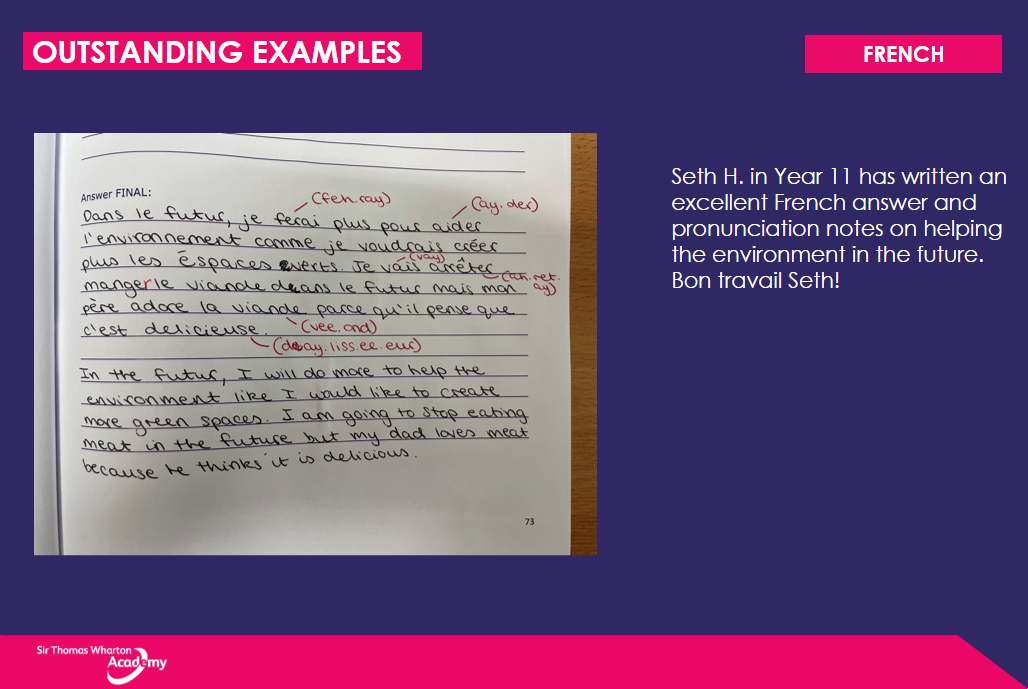 OUTSTANDING EXAMPLES
FRENCH
Answer FINAL:
(feh.ray)
(ay.der)
Dans le futur, je ferai plus pour aider
l'environnement comme je voudrais créer
plus les éspaces verts. Je vais arrêter
(vay)
(ah.ret.
ay)
manger le viande dans le futur mais mon
père adore la viande parce qu'il pense que
c'est delicieuse.
(vee.ond)
(day.liss.ee.eur)
In the futur, I will do more to help the
environment like I would like to create
more green spaces. I am going to stop eating
meat in the future but my dad loves meat
because he thinks it is delicious.
73
Seth H. in Year 11 has written an
excellent French answer and
pronunciation notes on helping
the environment in the future.
Bon travail Seth!
Sir Thomas Wharton
Academy